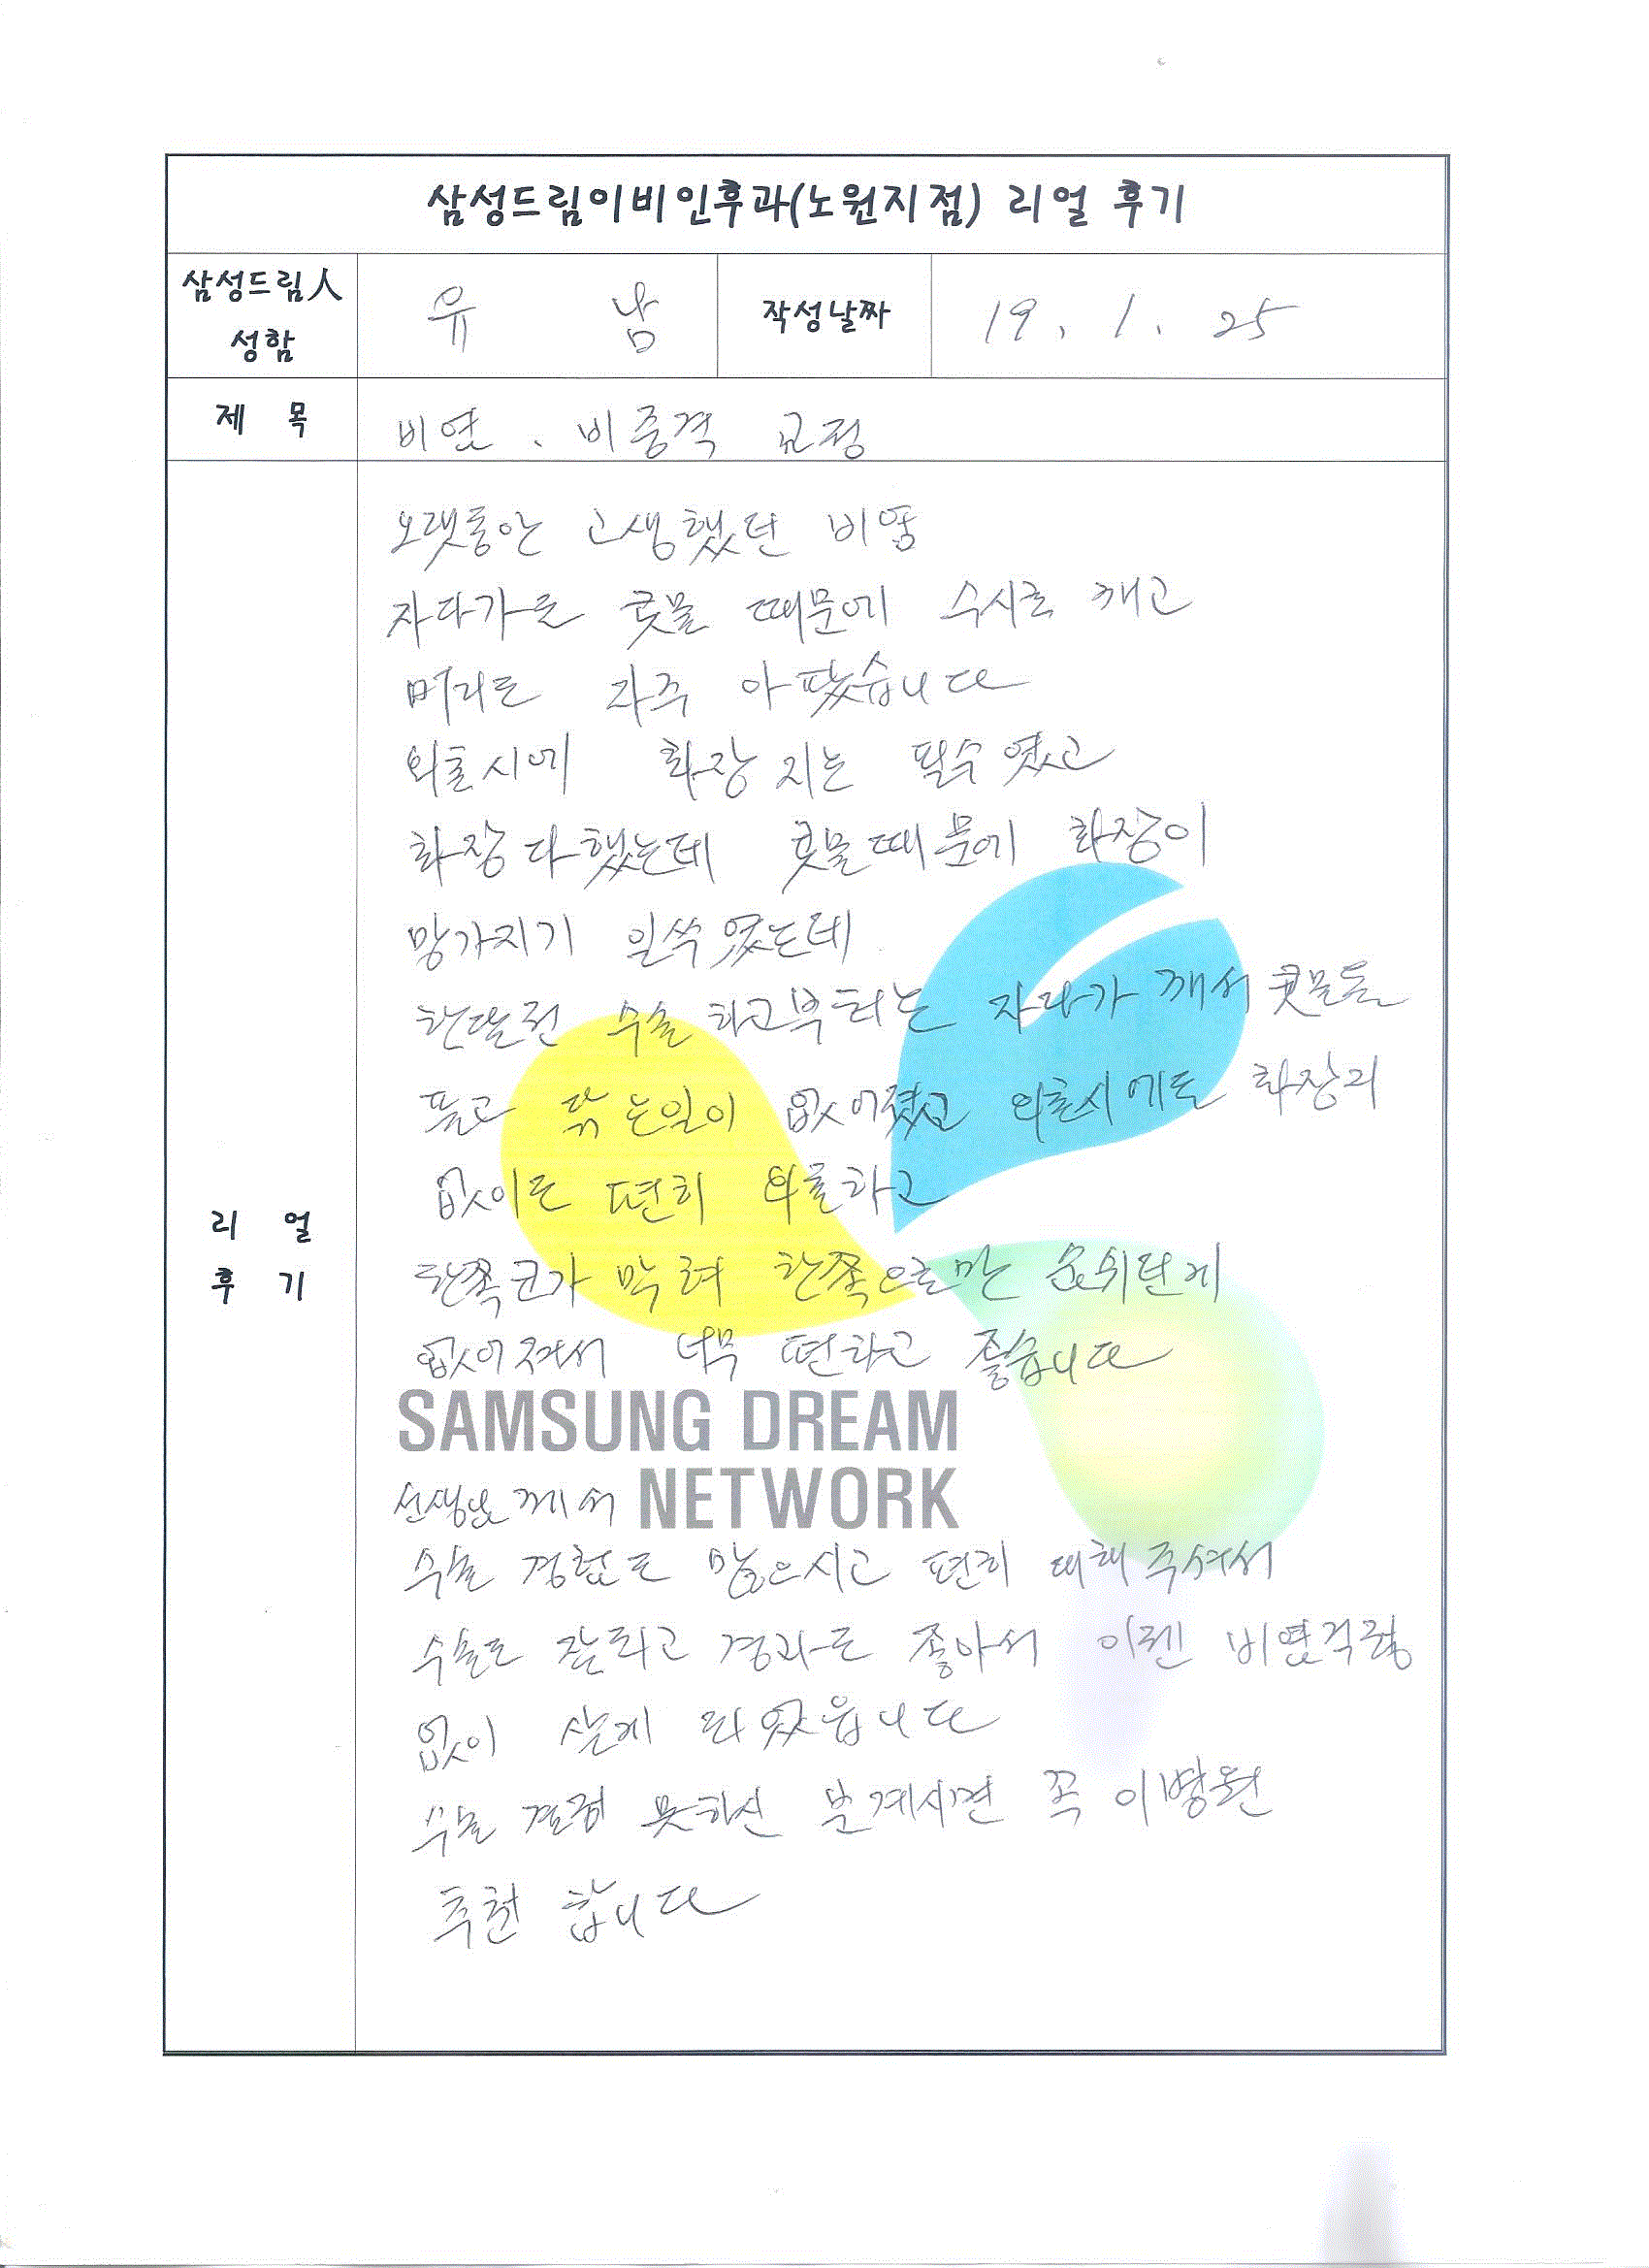 삼성드림이비인후과(노원지점) 리얼 후기
삼성드림人
성함
유 남
작성날짜
19. 1. 25
제 목
비염. 비중격 교정
리 얼
후 기
오랫동안 고생했던 비염
자다가도 콧물 때문에 수시로 깨고
머리도 자주 아팠습니다
외출시에 화장지는 필수였고
화장 다했는데 콧물때문에 화장이
망가지기 일쑤였는데
한달전 수술하고부터는 자다가 깨서 콧물을
풀고 닦는일이 없어졌고 외출시에도 화장지
없이도 편히 외출하고
한쪽코가 막혀 한쪽으로만 숨쉬던게
없어져서 너무 편하고 좋습니다
SAMSUNG DREAM
NETWORK
선생님께서
수술 경험도 많으시고 편히 대해주셔서
수술도 잘되고 경과도 좋아서 이젠 비염걱정
없이 살게 되었읍니다
수술 결정 못하신 분계시면 꼭 이병원
추천 합니다